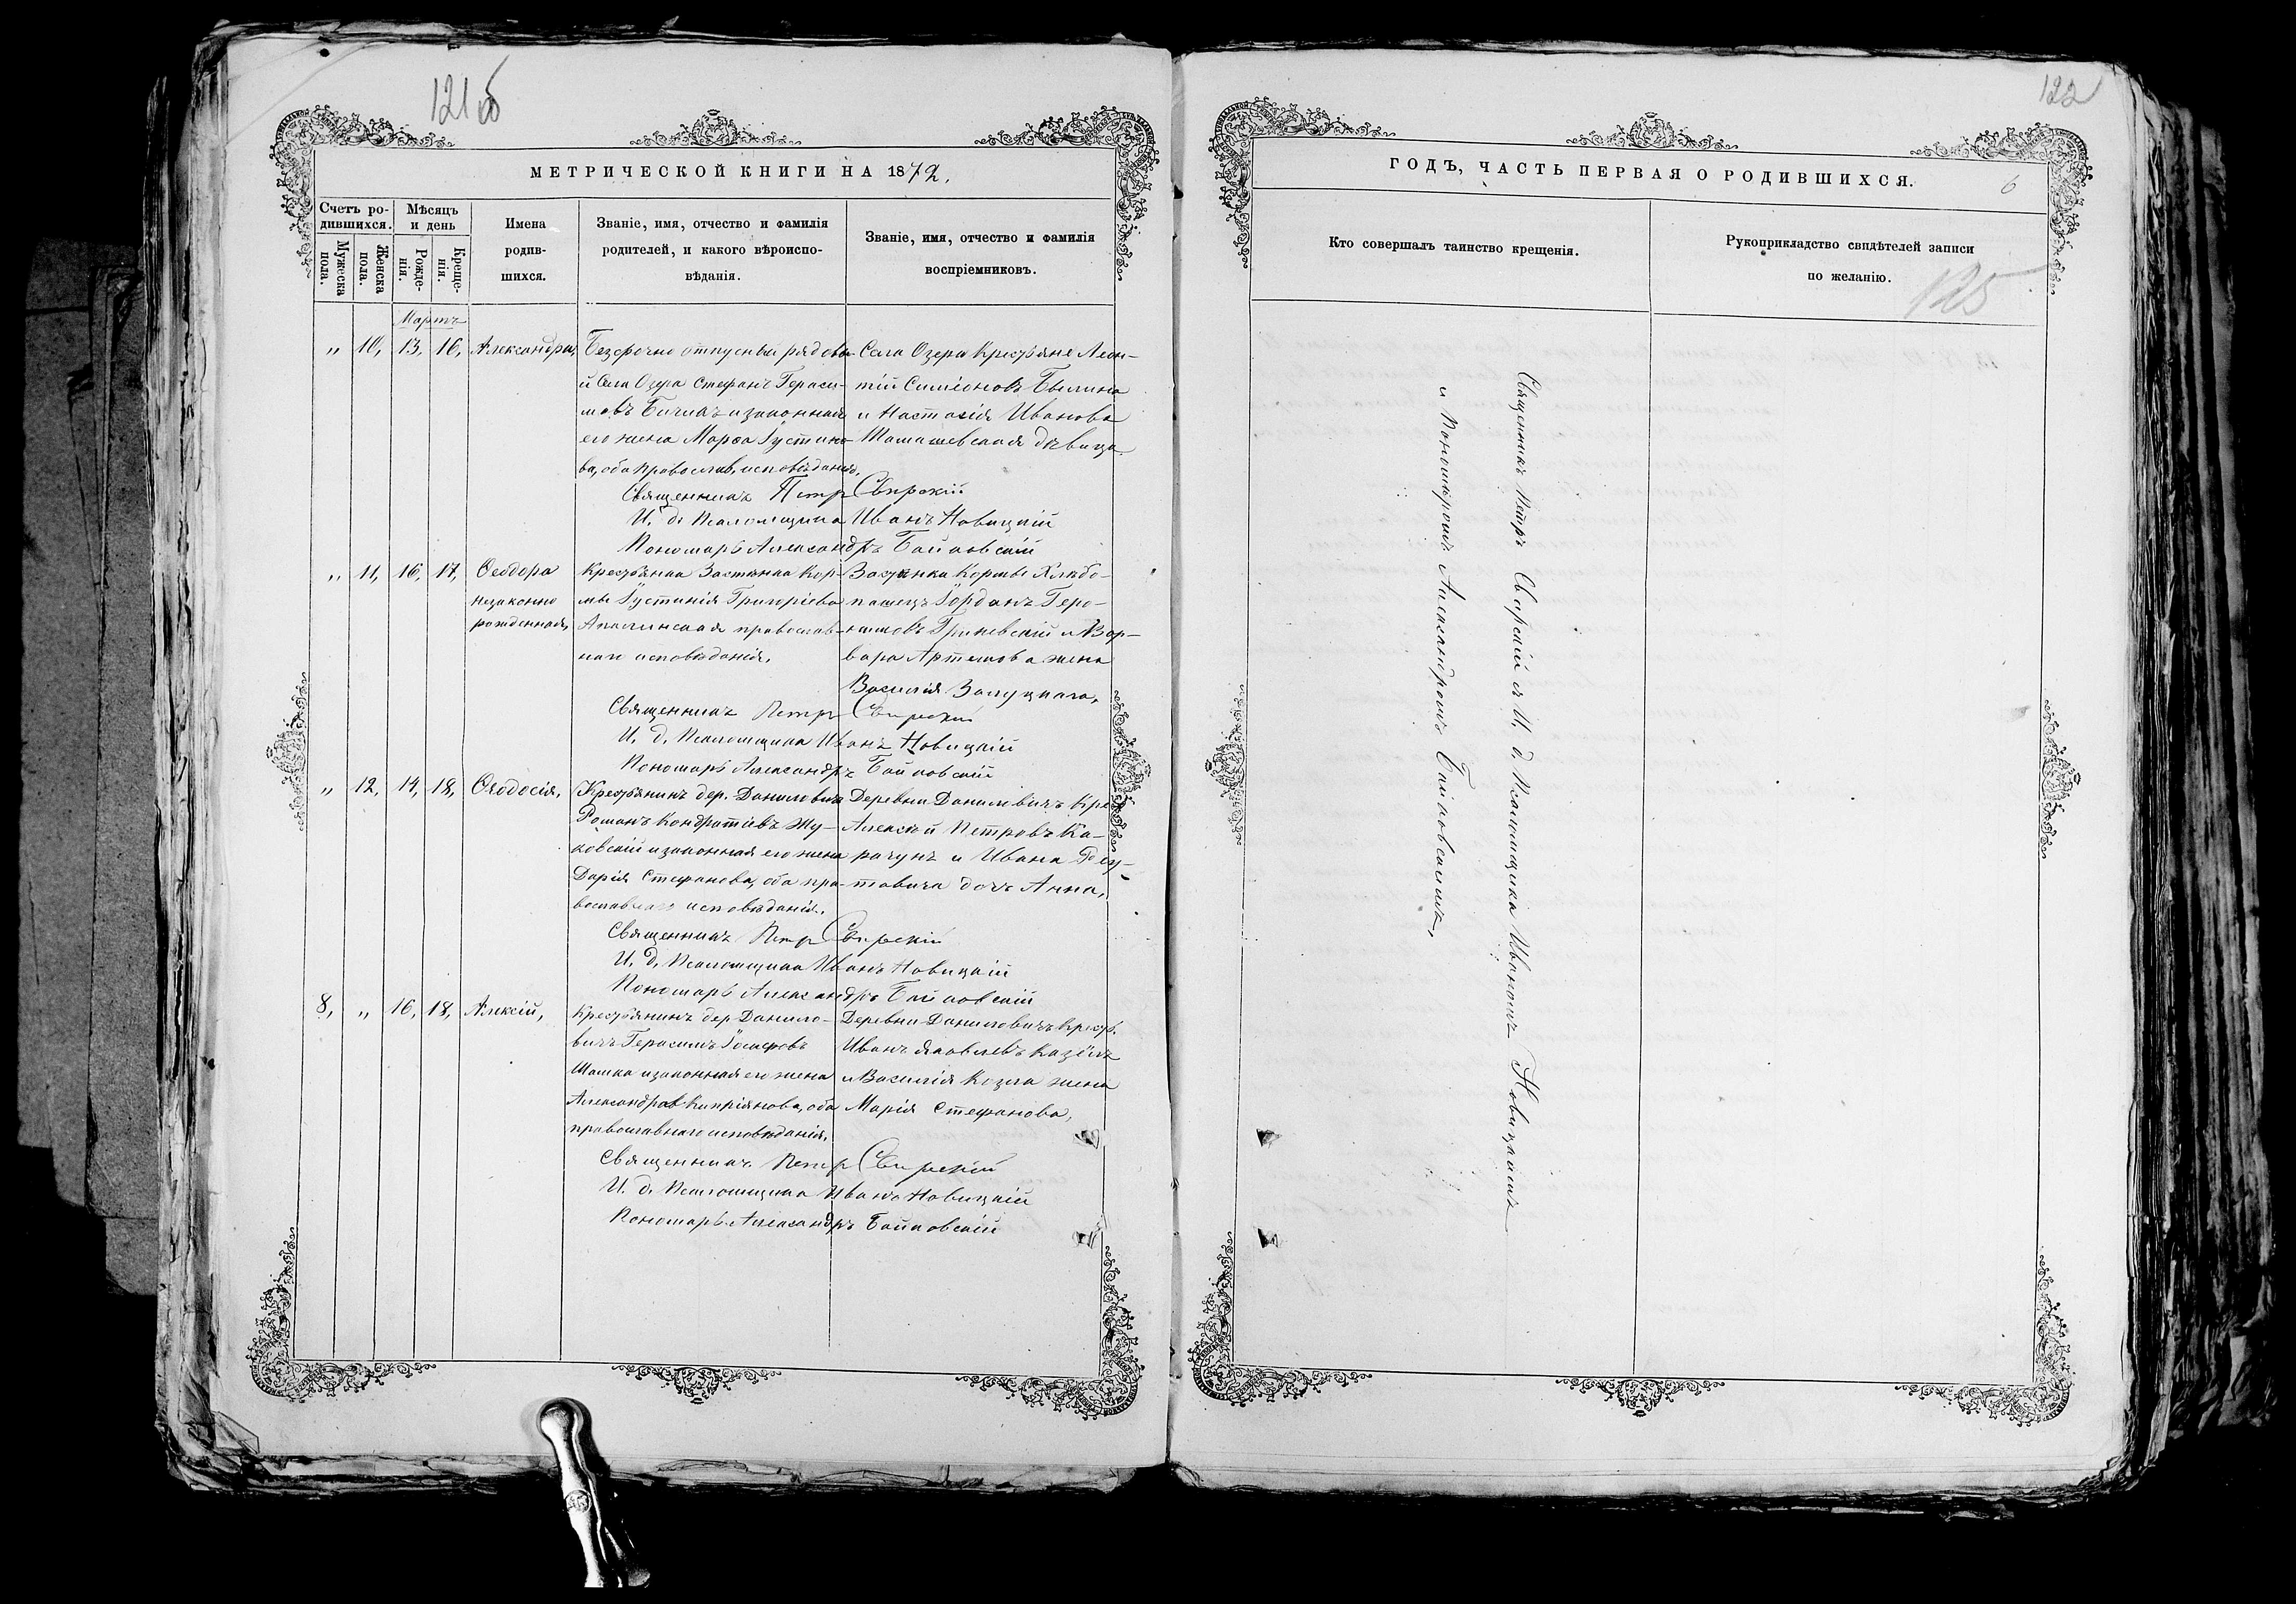 121 об
МЕТРИЧЕСКОЙ КНИГИ НА 1872,
Счетъ ро-
дившихся.
Мужеска
пола.
Женска
пола.
Мѣсяцъ
и день
Рожде-
нія.
Креще-
нія.
Имена
родив-
шихся.
Званіе, имя, отчество и фамилія
родителей, и какого вѣроиспо-
вѣданія.
Званіе, имя, отчество и фамилія
воспріемниковъ.
Мартъ
„ 10, 13, 16, Александра,
Безсрочно отпускный рядово-
й Села Озера Стефанъ Гераси-
мовъ Бичикъ и законная
его жена Марѳа Іустино-
ва, оба православ. исповѣданія,
Села Озера Крестьяне Леон-
тій Симіоновъ Былина
и Настасія Иванова
Шашашевская дѣвица
Священникъ Петр Свирскій
И. д. Псаломщика Иванъ Новицкій
Пономарь Александръ Байковскій
„ 11, 16, 17, Ѳеодора
незаконно
рожденная,
Крестьянка Застѣнка Кор-
мы Іустинія Григоріева
Апалинская православ-
наго исповѣданія,
Застѣнка Кормы Хлѣбо-
пашецъ Іорданъ Геро-
нимовъ Гриневскій и Вар-
вара Артемова жена
Василія Залуцкаго,
Священникъ Петр Свирскій
И. д. Псаломщика Иванъ Новицкій
Пономарь Александръ Байковскій
„ 12, 14, 18, Ѳеодосія,
Крестьянинъ дер. Даниловичъ
Романъ Кондратіевъ Жу-
ковскій и законная его жена
Дарія Стефанова, оба пра-
вославнаго исповѣданія.
Деревни Даниловичъ Кре.
Алексѣй Петровъ Ка-
рачунъ и Ивана Гау-
товича дочь Анна,
Священникъ Петр Свирскій
И. д. Псаломщика Иванъ Новицкій
Пономарь Александръ Байковскій
8, „ 16, 18, Алексій,
Крестьянинъ дер Данило-
вичъ Герасимъ Іосифовъ
Шашка и законная его жена
Александра Кипріянова, оба
православнаго исповѣданія,
Деревни Даниловичъ Крестъ.
Иванъ Яковлевъ Казёлъ
и Василія Козла жена
Марія Стефанова,
Священникъ Петр Свирскій
И. д. Псаломщика Иванъ Новицкій
Пономарь Александръ Байковскій
122
ГОДЪ, ЧАСТЬ ПЕРВАЯ О РОДИВШИХСЯ.
6
Кто совершалъ таинство крещенія.
Рукоприкладство свидѣтелей записи
по желанію.
125
Священникъ Петръ Свирскій съ И. д. Псаломщика Иваномъ Новицкимъ
и Пономаремъ Александромъ Байковскимъ,